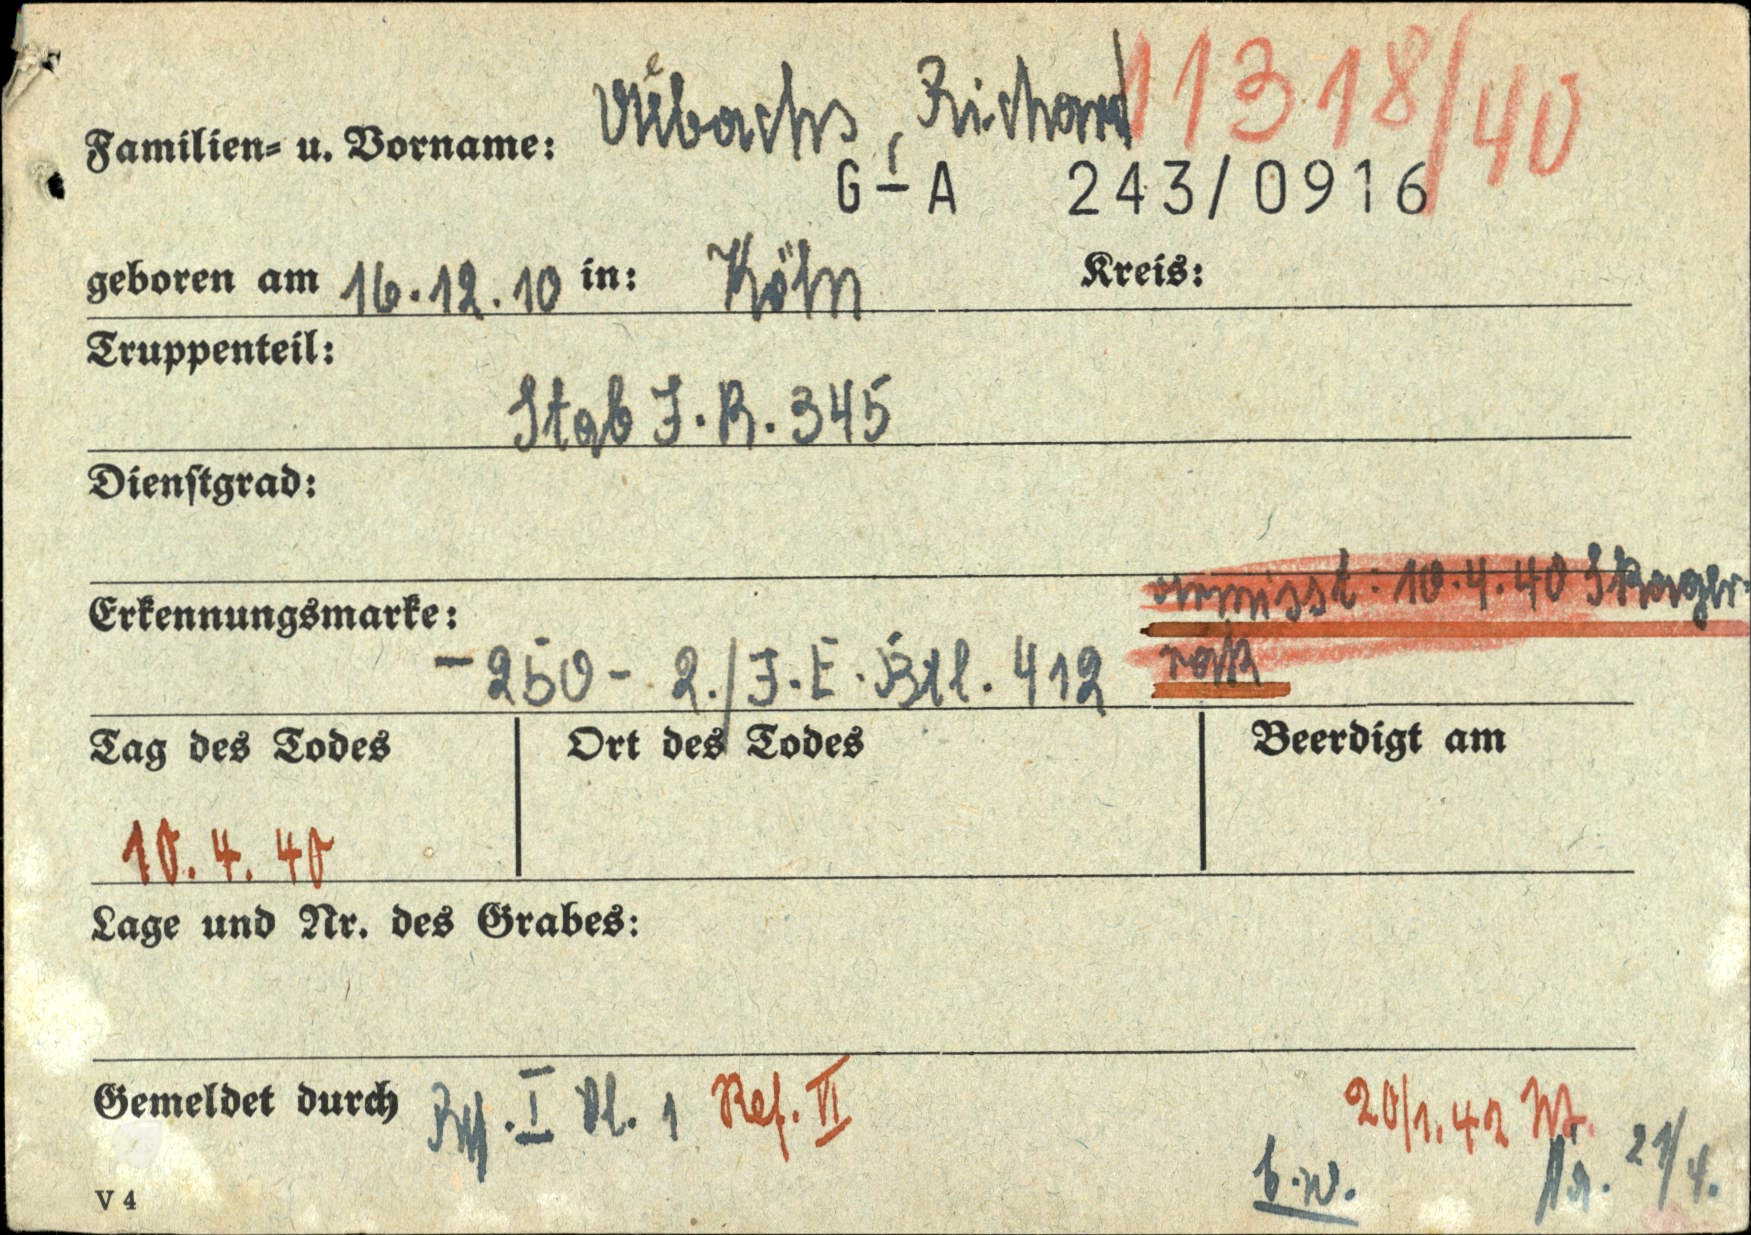 11318/40
Familien- u. Vorname: Richard
G-A 243/0916
geboren am 16.12.10 in: Köln Kreis:
Truppenteil:
Stab I.R. 345
Dienstgrad:
vermisst: 10.4.40 Skager-
rak
Erkennungsmarke:
-250- 2./I.E.Btl. 412
Tag des Todes Ort des Todes Beerdigt am
10.4.40
Lage und Nr. des Grabes:
Gemeldet durch Ref. I Bl. 1 Ref. II
20/1.42
b.w. 21/4.
V 4